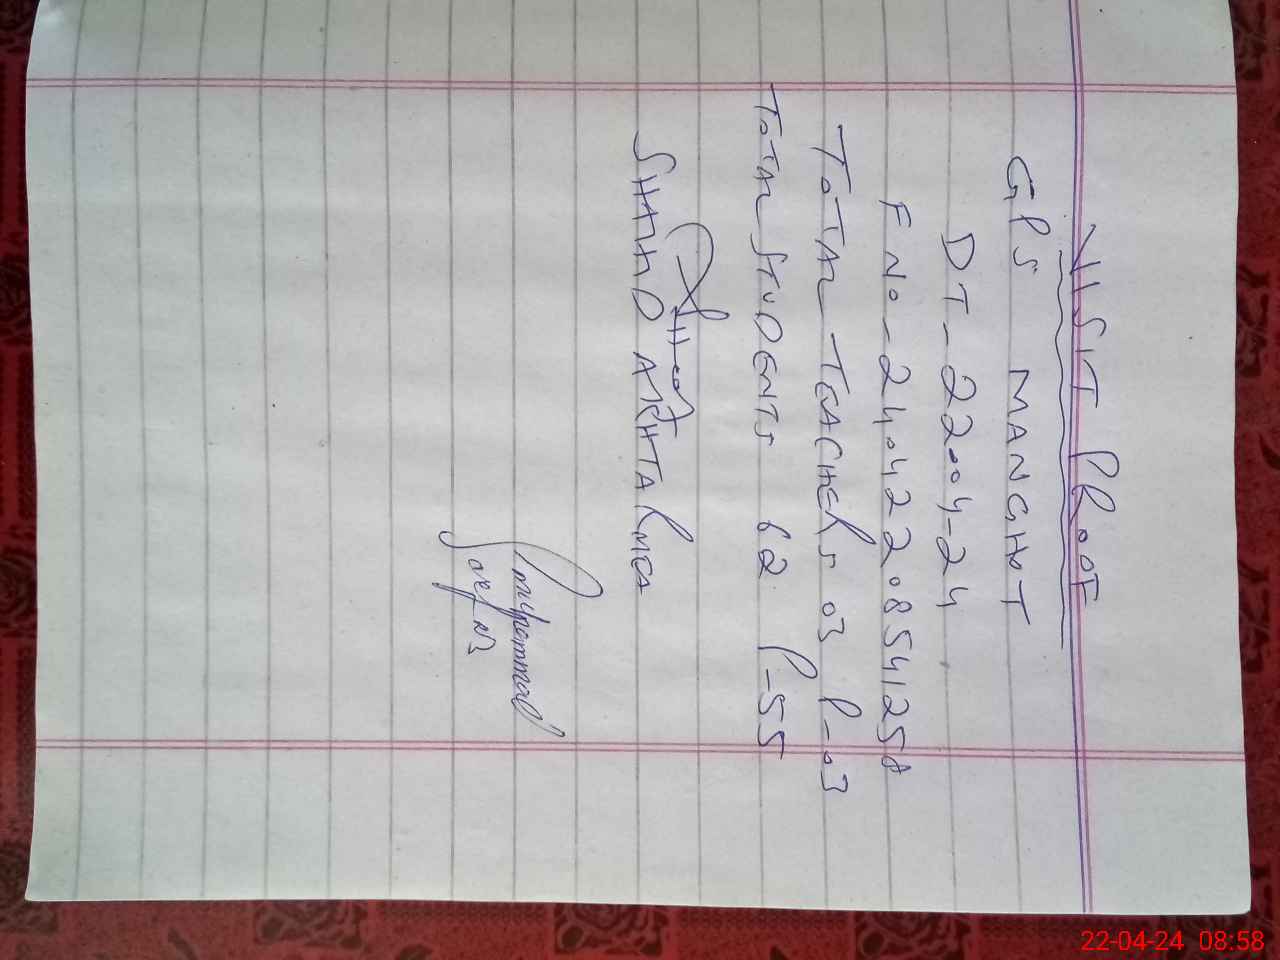 VISIT PROOF
GPS MANGHOT
DT-22-04-24
F No-24042208541258
TOTAL TEACHERS 03 P-03
TOTAL STUDENTS 62 P-55
SHAHID AKHTAR MEA
Muhammad
22-04-24 08:58